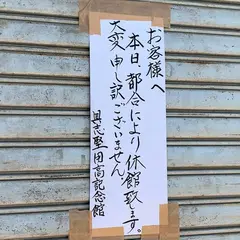 お客様へ
本日、都合により休館致します。
大変申し訳ございません。
興志塾田高記念館